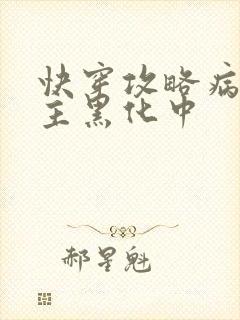 快穿攻略病
主黑化中
郝星魁